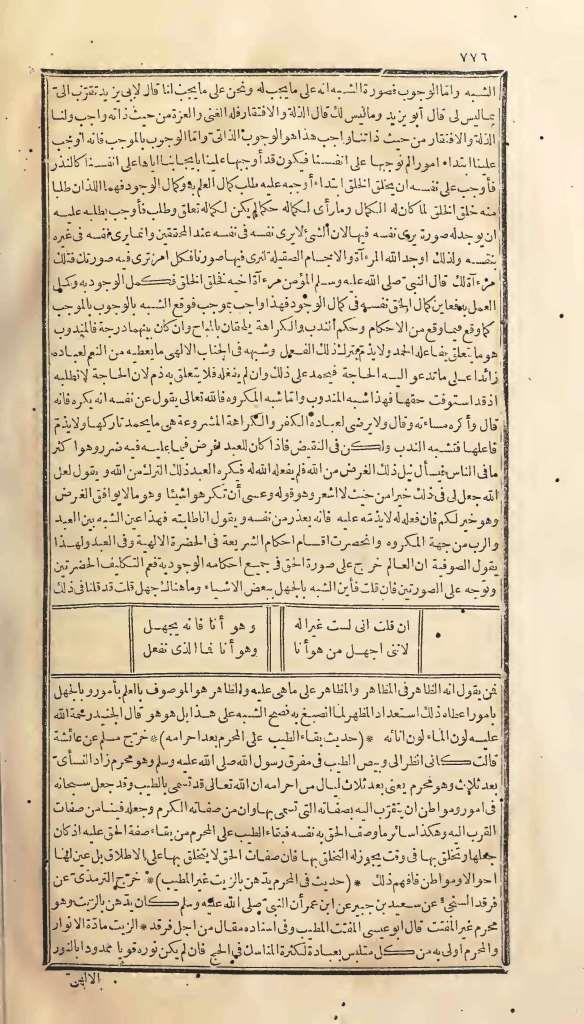 ٧٧٦
الشبه واما الوجوب فصورة الشبه انه على ما يجب له ونحن على ما يجب لنا قال لابي يزيد تقرب الى
بما ليس لى قال أبو يزيد وما ليس لك قال الذلة والافتقار فله الغنى والعزة من حيث ذاته واجب ولنا
الذلة والافتقار من حيث ذاتنا واجب هذا هو الوجوب الذاتى واما الوجوب بالموجب فانه أوجب
علينا ابتداء امورا لم نوجبها على انفسنا فيكون قد أوجبها علينا بايجابنا اياها على انفسنا كالنذر
فأوجب على نفسه ان يخلق الخلق ابتداء أوجبه عليه طلب كمال العلم به وكمال الوجود فهما اللذان طلبا
منه خلق الخلق لما كان له الكمال وما رأى لكماله حكما لم يكن لكماله تعلق وطلب فأوجب بطلبه عليه
ان يوجد له صورة يرى نفسه فيها لان الشئ لا يرى نفسه فى نفسه عند المحققين وانما يرى نفسه فى غيره
بنفسه ولذلك اوجد الله المرءآة والاجسام الصقيلة لنرى فيها صورنا فكل امر ترى فيه صورتك فتلك
مرءآة لك قال النبى صلى الله عليه وسلم المؤمن مرءآة اخيه فخلق الخلق فكمل الوجود به وكمل
العلم به فعاين كمال الحق نفسه فى كمال الوجود فهذا واجب بموجب فوقع الشبه بالوجوب بالموجب
كما وقع فيما وقع من الاحكام وحكم الندب والكراهة يلحقان بالمباح وان كان بينهما درجة فالمندوب
هو ما يتعلق بفاعله الحمد ولا يذم بترك ذلك الفعل وشبهه فى الجناب الالهى ما يعطيه من النعم لعباده
زائدا على ما تدعو اليه الحاجة فيحمد على ذلك وان لم يفعله فلا يتعلق به ذم لان الحاجة لا تطلبه
اذ قد استوفت حقها فهذا شبه المندوب واما شبه المكروه فالله تعالى يقول عن نفسه انه يكره فانه
قال وأكره مساءته وقال ولا يرضى لعباده الكفر والكراهة المشروعة هى ما يحمد تاركها ولا يذم
فاعلها فتشبه الندب ولكن فى النقيض فاذا كان للعبد غرض فيما عليه فيه ضرر وهو اكثر
ما فى الناس فيسأل نيل ذلك الغرض من الله فلم يفعله الله له فكره العبد ذلك الترك من الله ويقول لعل
الله جعل لى فى ذلك خيرا من حيث لا اشعر وهو قوله وعسى أن تكرهوا شيئا وهو ما لا يوافق الغرض
وهو خير لكم فان فعله له لا يذمه عليه فانه يعذر من نفسه ويقول انا طلبته فهذا عين الشبه بين العبد
والرب من جهة المكروه وانحصرت اقسام احكام الشريعة فى الحضرة الالهية وفى العبد ولهذا
يقول الصوفية ان العالم خرج على صورة الحق فى جميع احكامه الوجودية فعم التكليف الحضرتين
وتوجه على الصورتين فان قلت فأين الشبه بالجهل ببعض الاشياء وما هناك جهل قلت قد قلنا فى ذلك
ان قلت انى لست غير اله وهو أنا فانه يجهل
لاننى اجهل من هو أنا وهو أنا فما الذى نفعل
فمن يقول انه الظاهر فى المظاهر والمظاهر على ما هى عليه والظاهر هو الموصوف بالعلم بأمور وبالجهل
بأمور اعطاه ذلك استعداد المظهر لما انصبغ به فصح الشبه على هذا بل هو هو قال الجنيد رحمة الله
عليه لون الماء لون انائه *(حديث بقاء الطيب على المحرم بعد احرامه)* خرج مسلم عن عائشة
قالت كانى انظر الى وبيص الطيب فى مفرق رسول الله صلى الله عليه وسلم وهو محرم زاد النسأى
بعد ثلاث وهو محرم يعنى بعد ثلاث ليال من احرامه ان الله تعالى قد تسمى بالطيب وقد جعل سبحانه
فى امور ومواطن ان يتقرب اليه بصفاته التى تسمى بها وان من صفاته الكرم وجعله فينا من صفات
القرب اليه وهكذا سائر ما وصف الحق به نفسه فبقاء الطيب على المحرم من بقاء صفة الحق عليه اذ كان
جعلها وتخلق بها فى وقت يجوز له التخلق بها فان صفات الحق لا يتخلق بها على الاطلاق بل عين لها
احوالا ومواطن فافهم ذلك *(حديث فى المحرم يدهن بالزيت غير المطيب)* خرج الترمذى عن
فرقد السنجى عن سعيد بن جبير عن ابن عمر أن النبى صلى الله عليه وسلم كان يدهن بالزيت وهو
محرم غير المقتت قال ابو عيسى المقتت المطيب وفى اسناده مقال من اجل فرقد * الزيت مادة الانوار
والمحرم اولى به من كل متلبس بعبادة لكثرة المناسك فى الحج فان لم يكن نوره قويا ممدودا بالنور